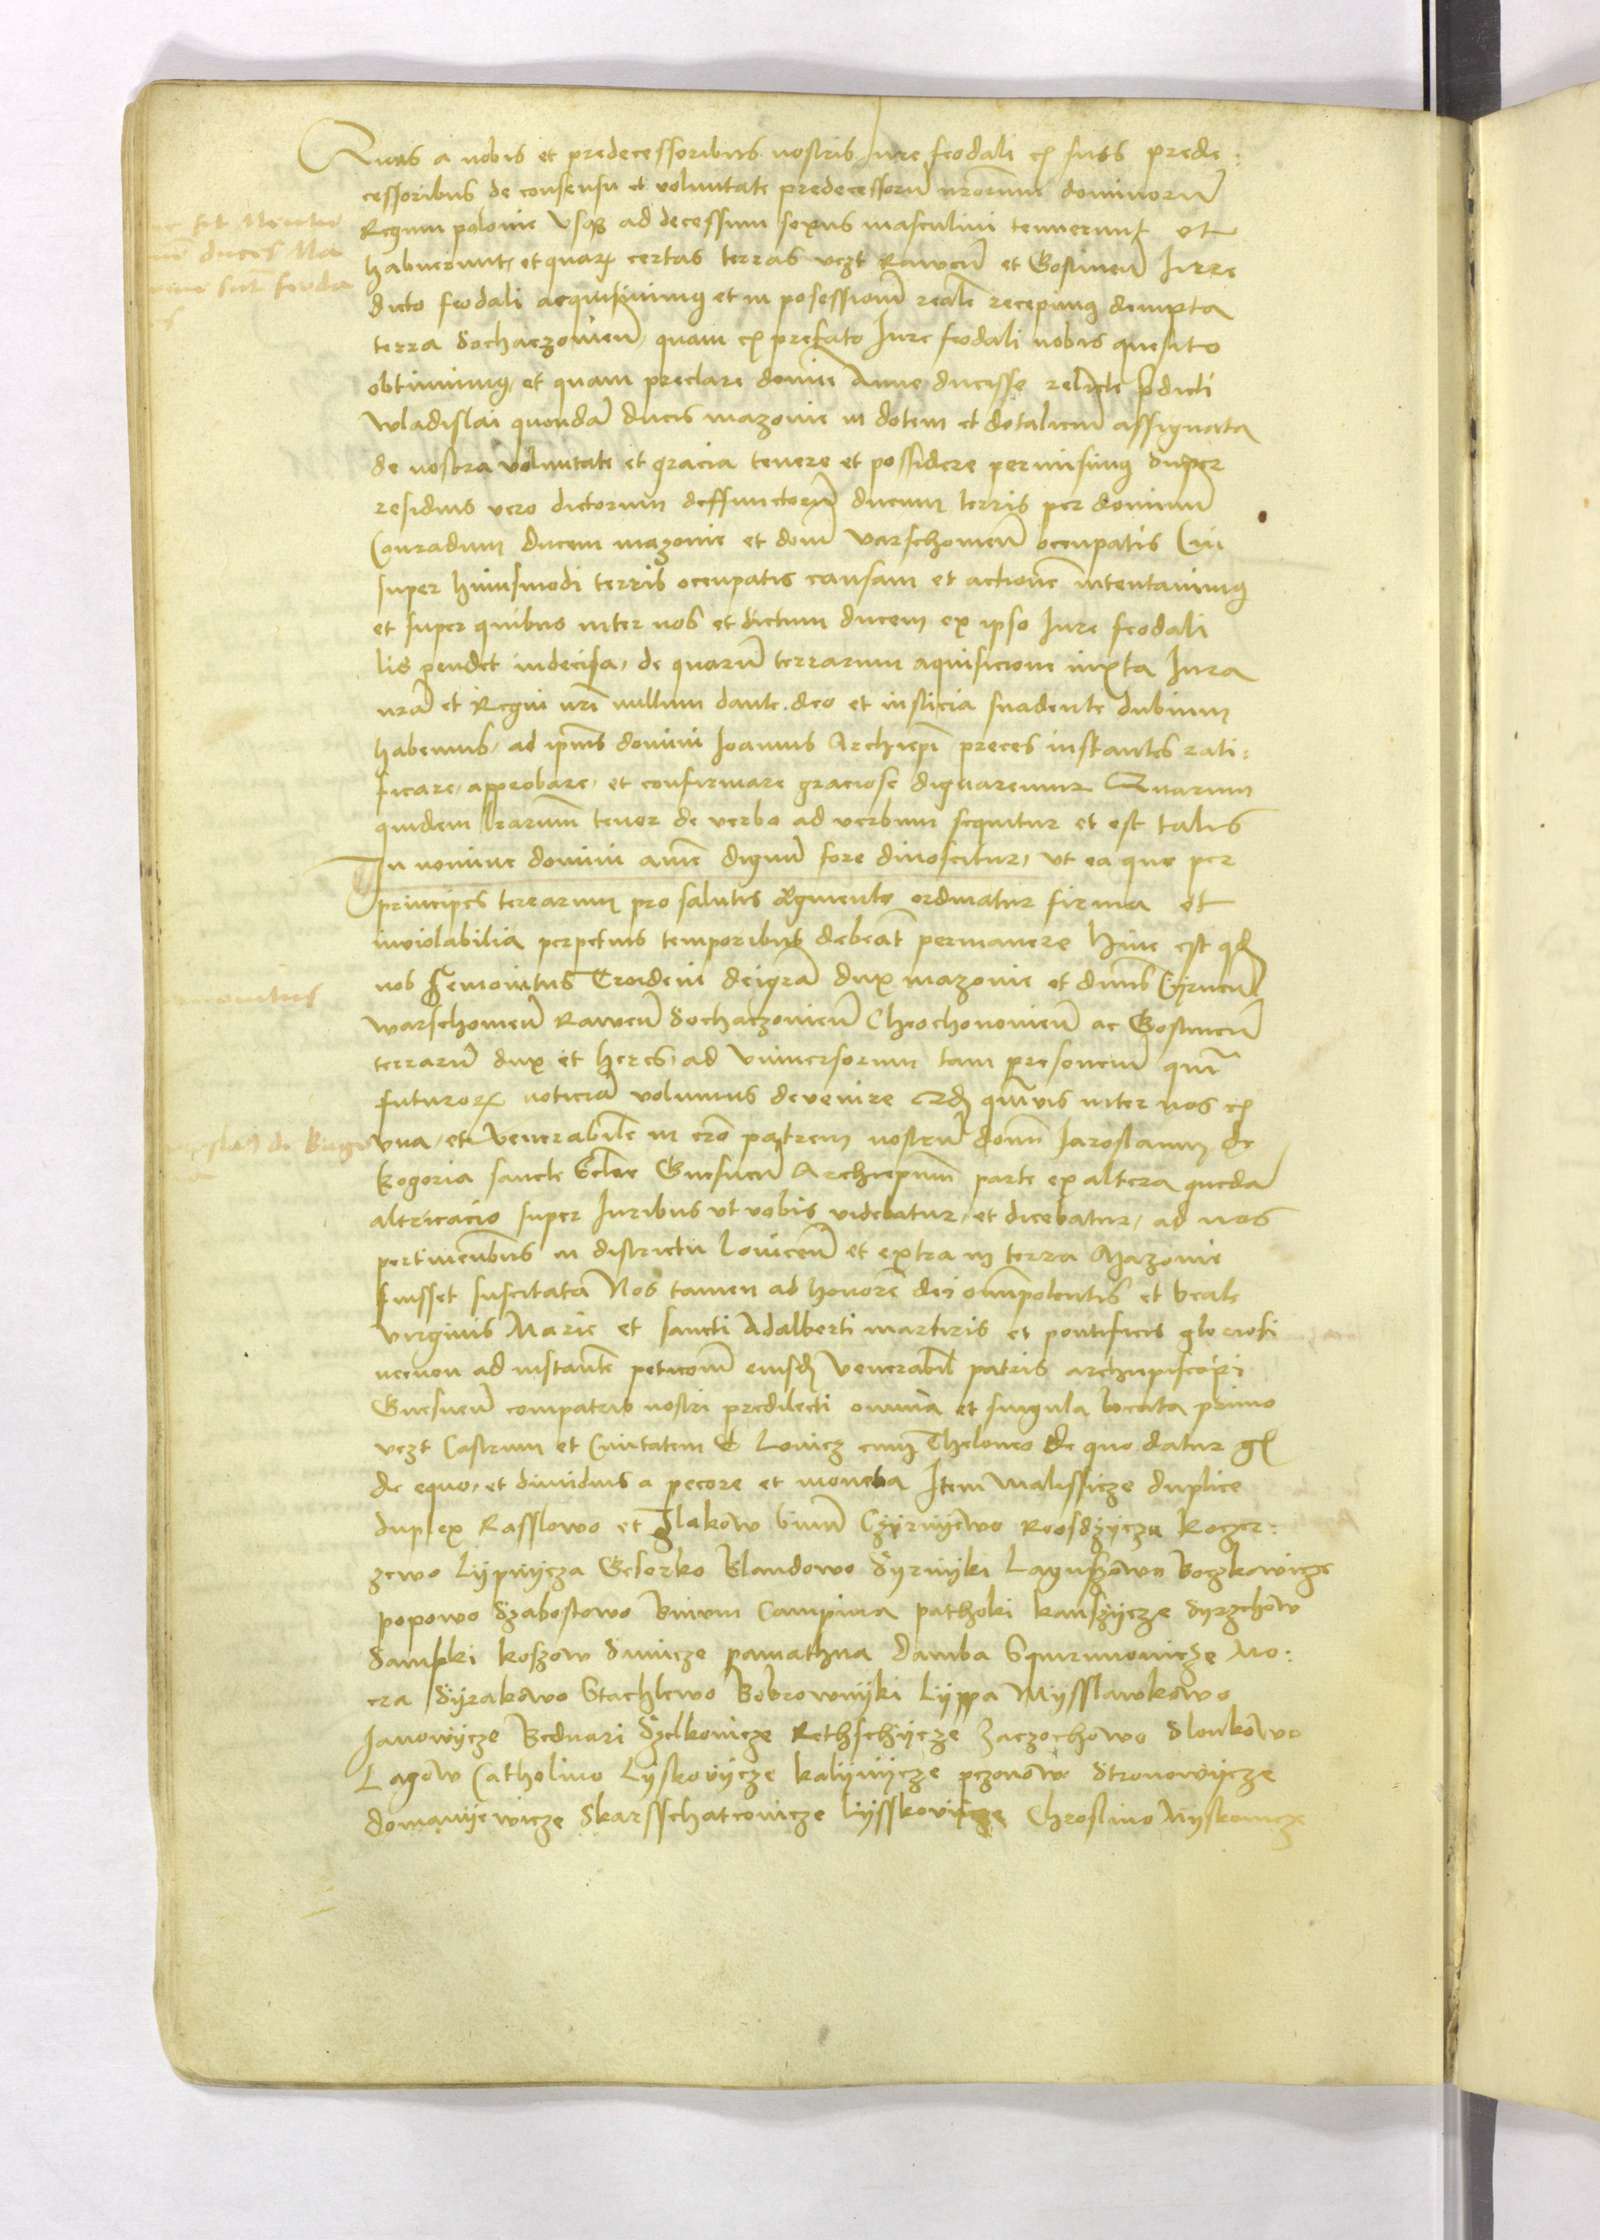 Quas a nobis et predecessoribus nostris Iure feodali ex suis prede:
cessoribus de consensu et voluntate predecessorũ nrorum dominorũ
Regum polonie Usq ad decessum sexus masculini tenuerunt et
habuerunt, et quarũ certas terras vczt Rawcen̄ et Gostinen̄ Iure
dicto feodali acquisiuimus et in posessionē realē recepimus dempta
terra Sochaczouien̄, quam ex prefato Iure feodali nobis quesito
obtinuimus, et quam preclare domine Anne ducisse relicte p̄dicti
Wladislai quondā ducis mazouie in dotem et dotalicium assignata
de nostra voluntate et gracia tenere et possidere permisimus Super
residuis vero dictorum deffunctorũ ducum terris per dominum
Conradum Ducem mazouie et dom̄ Varschouien̄ occupatis Cui
super huiusmodi terris occupatis causam et actionē intentauimus
et super quibus inter nos et dictum ducem ex ipso Iure feodali
lis pendet indecisa, de quarũ terrarum aquisicione iuxta Iura
nrā et Regni nrī nullum dante deo et iusticia suadente dubium
habemus, ad ipsius domini Ioannis Archiepī preces instantes rati:
ficare, approbare, et confirmare graciose dignaremur Quarum
quidem lrarum tenor de verbo ad verbum sequitur et est talis
In nomine domini amē dignũ fore dinoscitur, ut ea que per
principes terrarum pro salutis augmento ordinatur firma et
inviolabilia perpetuis temporibus debeāt permanere Hinc est qd
nos Semouitus Troideni dei grā dux mazouie et dnus Cyrnen̄
warschouien̄ Rawen̄ Sochaczouien̄ ac Gostinen̄
terrarũ dux et heres, ad Vniuersorum tam presencium qm̄
futurorũ noticiā volumus deuenire Qd quāuis inter nos ex
vna, et Venerabilē in cro patrem nostrũ domn̄ Iaroslaum de
Kogoria sancte Eclie Gnesnen̄ Archiepum̄ parte ex altera quedā
altricacio super Iuribus ut nobis videbatur, et dicebatur, ad nos
pertinentibus in districtu louicen̄ et extra in terra Mazouie
fuisset suscitata Nos tamen ad honorē dei omnipotentis et beate
virginis Marie et sancti Adalberti martiris et pontificis gloriosi
necnon ad instantē peticionē eiusdē Venerabil̄ patris archiepiscopi
Gnesnen̄ compatris nostri predilecti omnia et singula primo
vczt Castrum et Ciuitatem Lowicz cum Theloneo de quo datur gs
de equo, et dimidius a pecore et moneta Item Malissicze duplice
duplex Rasslowo et Zlakow Czyrnyewo Roosdzycza Koczer:
zewo Lypnycza Gesorko Blandowo Syrnyki Lagussowo Boczkowicze
popowo Szabostowo Bininm Campina pathoki kanszycze Syrzchow
Sampki koszow Sinicze pamathna Damba Squirniouicze Mo:
cra Syrakowo Stachlewo Bobrownyki Lyppa Mysslawkowo
Janowycze Bednari Szelkouicze Rethschycze Zaczochowo Slonkowo
Lagow Catholino Lyskovycze kalynycze pczonow Stronowycze
domanyewicze Skarsschatcouicze lysskovicze Chroslino Myskouicze